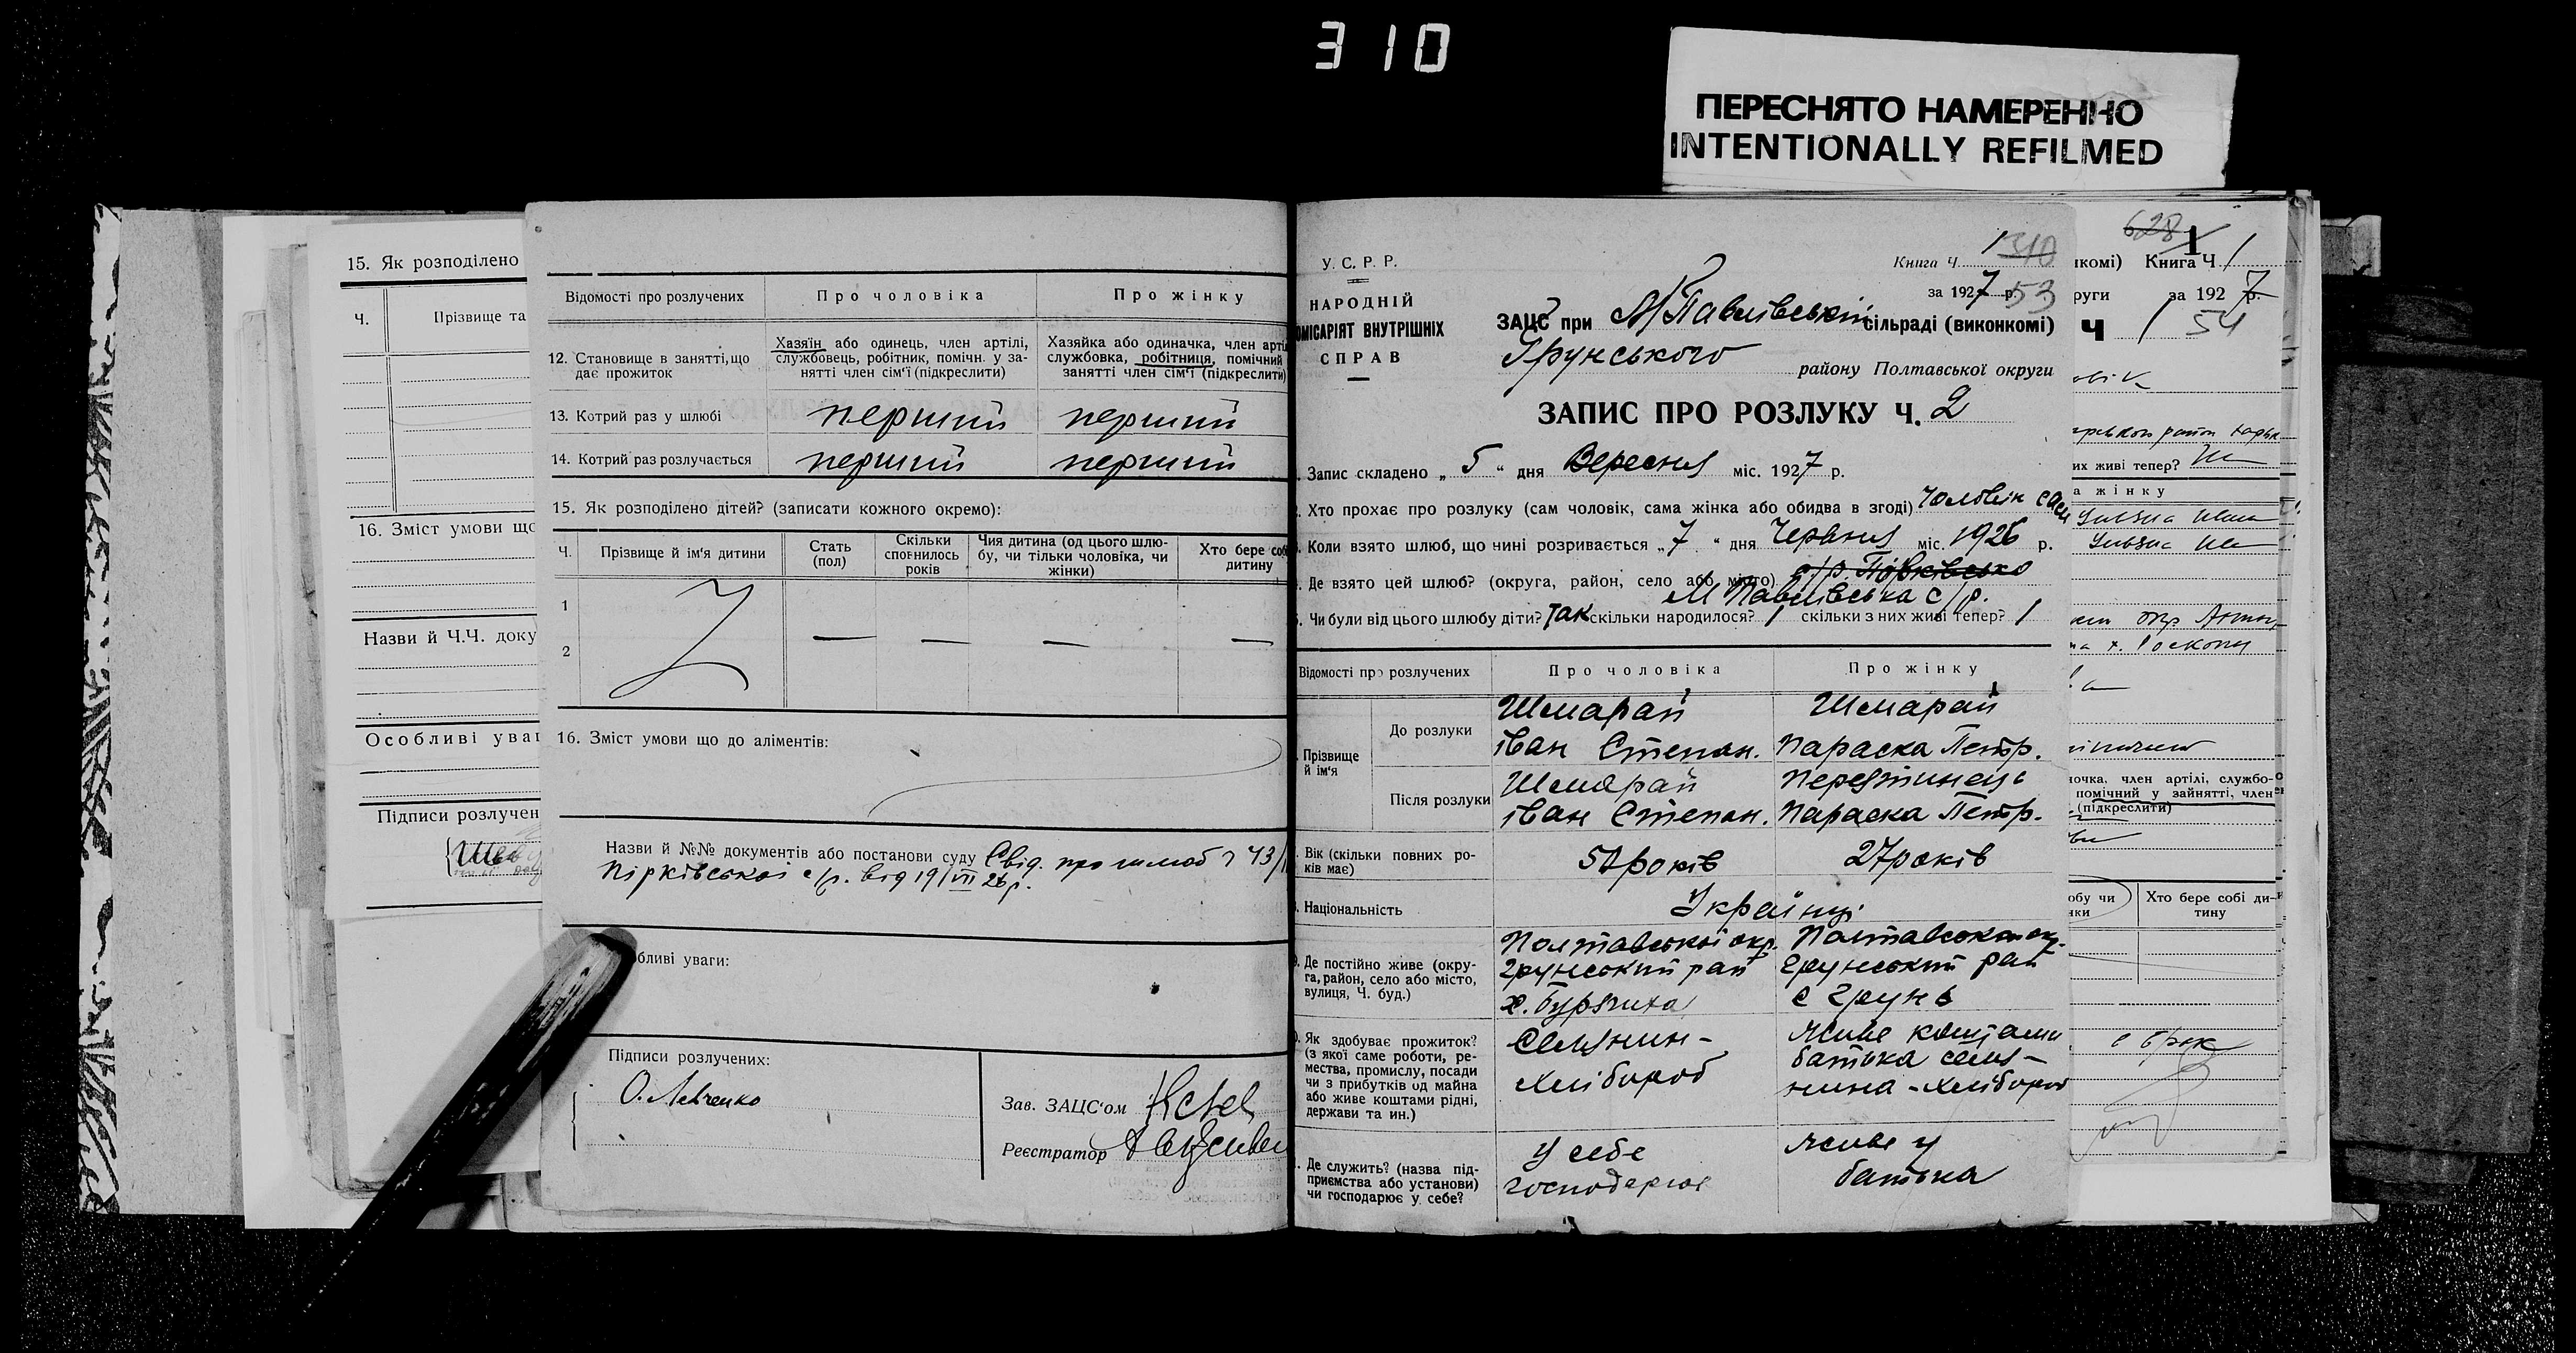 310
ПЕРЕСНЯТО НАМЕРЕННО
INTENTIONALLY REFILMED
15. Як розподілено
Ч.
Прізвище та
16. Зміст умови що
Назви й Ч.Ч. доку
Особливі уваг
Підписи розлучен
Відомості про розлучених
Про чоловіка
Про жінку
12. Становище в занятті, що
дає прожиток
Хазяїн або одинець, член артілі,
службовець, робітник, помічн. у за-
нятті член сім'ї (підкреслити)
Хазяйка або одиначка, член арті
службовка, робітниця, помічний
занятті член сім'ї (підкреслити)
13. Котрий раз у шлюбі
перший
перший
14. Котрий раз розлучається
перший
перший
15. Як розподілено дітей? (записати кожного окремо):
Ч.
Прізвище й ім'я дитини
Стать
(пол)
Скільки
сповнилось
років
Чия дитина (од цього шлю-
бу, чи тільки чоловіка, чи
жінки)
Хто бере соб
дитину
1
2
16. Зміст умови що до аліментів:
Назви й №№ документів або постанови суду Свід. про шлюб 43/
Пірківської с/р. від 19/VII 26 р.
бливі уваги:
Підписи розлучених:
О. Левченко
Зав. ЗАЦС'ом
Реєстратор
У. С. Р. Р.
НАРОДНІЙ
ОМІСАРІЯТ ВНУТРІШНІХ
СПРАВ
Книга Ч. 1 310
за 1927 р. 53
ЗАЦС при М Павлівській сільраді (виконкомі)
Грунського району Полтавської округи
ЗАПИС ПРО РОЗЛУКУ Ч. 2
Запис складено „ 5 “ дня Вересня міс. 1927 р.
Хто прохає про розлуку (сам чоловік, сама жінка або обидва в згоді) Чоловік сам
Коли взято шлюб, що нині розривається „ 7 “ дня Червня міс. 1926 р.
Де взято цей шлюб? (округа, район, село або місто)
М Павлівська с/р.
Чи були від цього шлюбу діти? Так скільки народилося? 1 скільки з них живі тепер? 1
Відомості про розлучених
Про чоловіка
Про жінку
Прізвище
й ім'я
До розлуки
Шмарай
Іван Степан.
Шмарай
Параска Петр.
Після розлуки
Шмарай
Іван Степан.
Перетинець
Параска Петр.
Вік (скільки повних ро-
ків має)
років
27 років
Національність
Українці
Де постійно живе (окру-
га, район, село або місто,
вулиця, Ч. буд.)
Полтавської окр.
Грунський рай
х.
Полтавської ок.
Грунський рай
с Грунь
Як здобуває прожиток?
(з якої саме роботи, ре-
мества, промислу, посади
чи з прибутків од майна
або живе коштами рідні,
держави та ин.)
Селянин-
хлібороб
живе коштами
батька селя-
нина-хлібороб
Де служить? (назва під-
приємства або установи)
чи господарює у себе?
У себе
господарює
живе у
батька
628 1
комі) Книга Ч 1
руги за 1927 р.
Ч 1 54
их живі тепер?
а жінку
ночка, член артілі, службо-
помічний у зайнятті, член
(підкреслити)
обу чи
нки
Хто бере собі ди-
тину